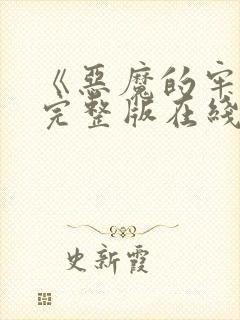 《恶魔的牢
完整版在线
史新霞